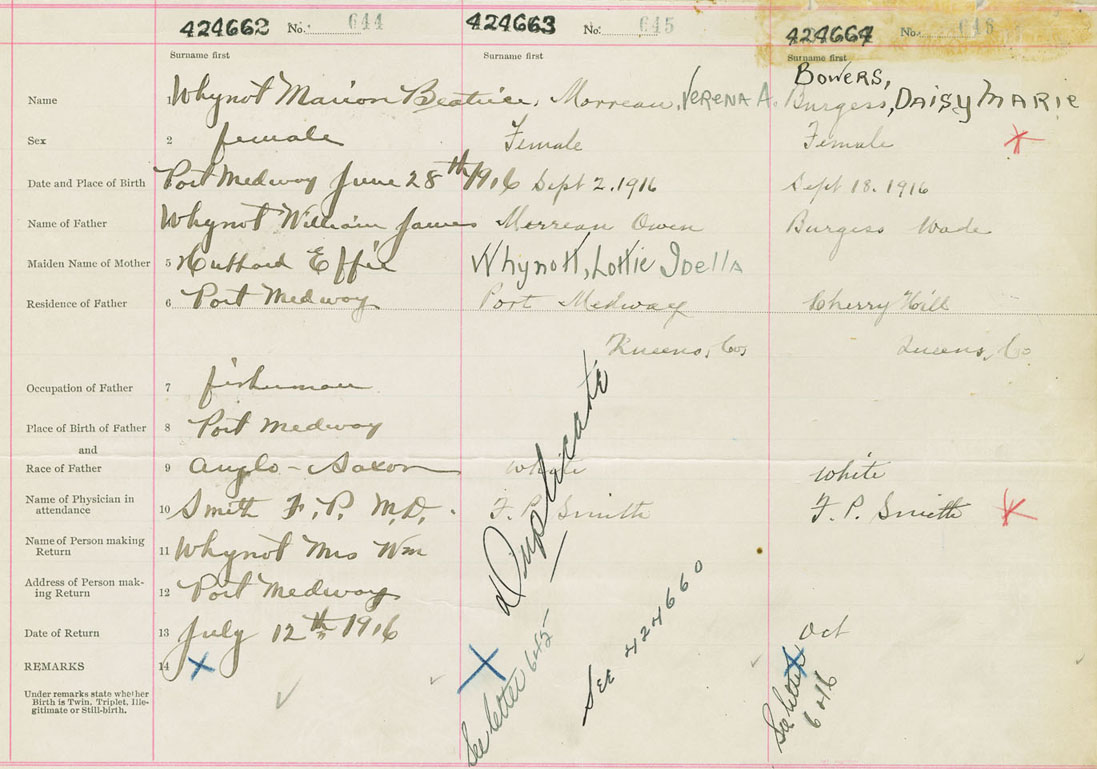 424662 No. 644 424663 No. 645 424664 No.
Surname first Surname first Surname first
Bowers,
Name 1 Whynot Marion Beatrice, Morreau, Verena A. Burgess, Daisy Marie
Sex 2 female Female Female
Date and Place of Birth Port Medway June 28th 1916 Sept 2. 1916 Sept 18. 1916
Name of Father Whynot William James Morreau Owen Burgess Wade
Maiden Name of Mother 5 Effie Whynott, Lottie Idella
Residence of Father 6 Port Medway Port Medway Cherry Hill
Queens, Co, Queens, Co
Occupation of Father 7 fisherman
Place of Birth of Father 8 Port Medway
and
Race of Father 9 Anglo-Saxon White White
Name of Physician in
attendance 10 Smith F. P. M.D. F. P. Smith F. P. Smith
Name of Person making
Return 11 Whynot Mrs Wm
Address of Person mak-
ing Return 12 Port Medway
Date of Return 13 July 12th 1916 Oct
REMARKS 14
Under remarks state whether
Birth is Twin, Triplet, Ille-
gitimate or Still-birth.
Duplicate
See 424660
See letter 645
See letter